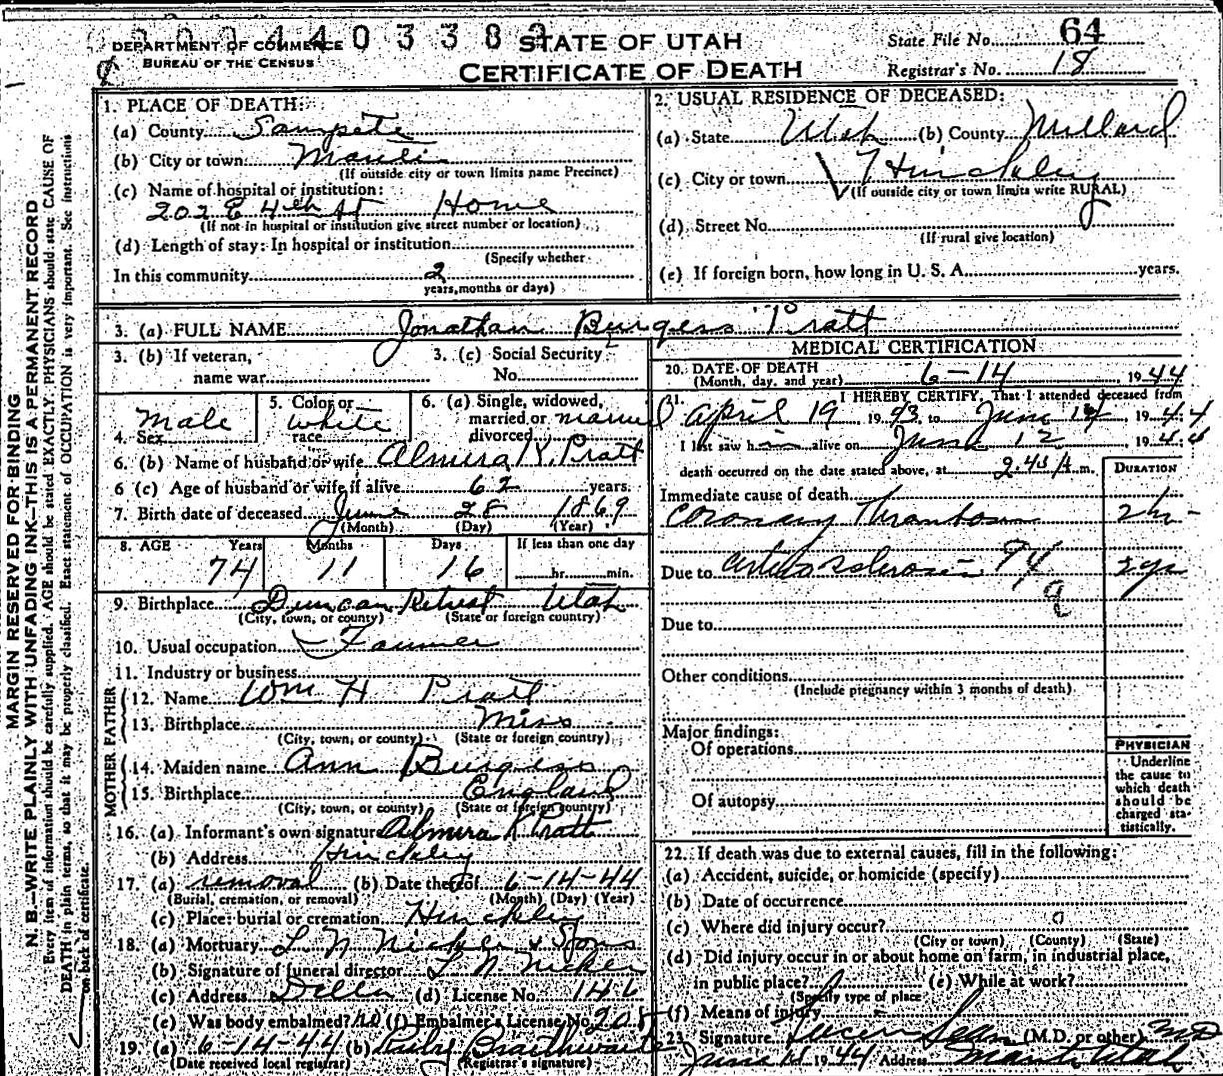 DEPARTMENT OF COMMERCE
BUREAU OF THE CENSUS
STATE OF UTAH
CERTIFICATE OF DEATH
State File No. 64
Registrar's No. 18
MARGIN RESERVED FOR BINDING
N. B.—WRITE PLAINLY WITH UNFADING INK—THIS IS A PERMANENT RECORD
Every item of information should be carefully supplied. AGE should be stated EXACTLY. PHYSICIANS should state CAUSE OF
DEATH in plain terms, so that it may be properly classified. Exact statement of OCCUPATION is very important. See instructions
on back of certificate.
1. PLACE OF DEATH:
(a) County Sanpete
(b) City or town Manti
(If outside city or town limits name Precinct)
(c) Name of hospital or institution:
202 E 4th St Home
(If not in hospital or institution give street number or location)
(d) Length of stay: In hospital or institution
(Specify whether
In this community 2
years, months or days)
2. USUAL RESIDENCE OF DECEASED:
(a) State Utah (b) County Millard
(c) City or town Hinckley
(If outside city or town limits write RURAL)
(d) Street No.
(If rural give location)
(e) If foreign born, how long in U. S. A. years.
3. (a) FULL NAME Jonathan Burgess Pratt
3. (b) If veteran,
name war
3. (c) Social Security
No.
4. Sex Male
5. Color or race White
6. (a) Single, widowed, married or divorced married
6. (b) Name of husband or wife Almira K. Pratt
6 (c) Age of husband or wife if alive 62 years.
7. Birth date of deceased June 28 1869
(Month) (Day) (Year)
8. AGE Years Months Days If less than one day
74 11 16 hr. min.
9. Birthplace Duncan Retreat Utah
(City, town, or county) (State or foreign country)
10. Usual occupation Farmer
11. Industry or business
FATHER
12. Name Wm H Pratt
13. Birthplace Miss
(City, town, or county) (State or foreign country)
MOTHER
14. Maiden name Ann Burgess
15. Birthplace England
(City, town, or county) (State or foreign country)
16. (a) Informant's own signature Almira K Pratt
(b) Address Hinckley
17. (a) removal (b) Date thereof 6-14-44
(Burial, cremation, or removal) (Month) (Day) (Year)
(c) Place: burial or cremation Hinckley
18. (a) Mortuary & Sons
(b) Signature of funeral director
(c) Address Delta (d) License No. 146
(e) Was body embalmed? no (f) Embalmer's License No.
19. (a) 6-14-44 (b) Ruby Braithwaite
(Date received local registrar) (Registrar's signature)
MEDICAL CERTIFICATION
20. DATE OF DEATH
(Month, day, and year) 6-14 1944
21. I HEREBY CERTIFY, That I attended deceased from
April 19 1943 to June 14 1944
I last saw him alive on June 12 1944
death occurred on the date stated above, at 2:45 A m.
DURATION
Immediate cause of death
Coronary Thrombosis 2 hr
Due to arteriosclerosis 94 2 yr
a
Due to
Other conditions
(Include pregnancy within 3 months of death)
Major findings:
Of operations
Of autopsy
PHYSICIAN
Underline
the cause to
which death
should be
charged sta-
tistically.
22. If death was due to external causes, fill in the following:
(a) Accident, suicide, or homicide (specify)
(b) Date of occurrence
(c) Where did injury occur?
(City or town), (County) (State)
(d) Did injury occur in or about home on farm, in industrial place,
in public place? (e) While at work?
(Specify type of place
(f) Means of injury
23. Signature (M.D. or other) MD
June 1944 Address Manti Utah